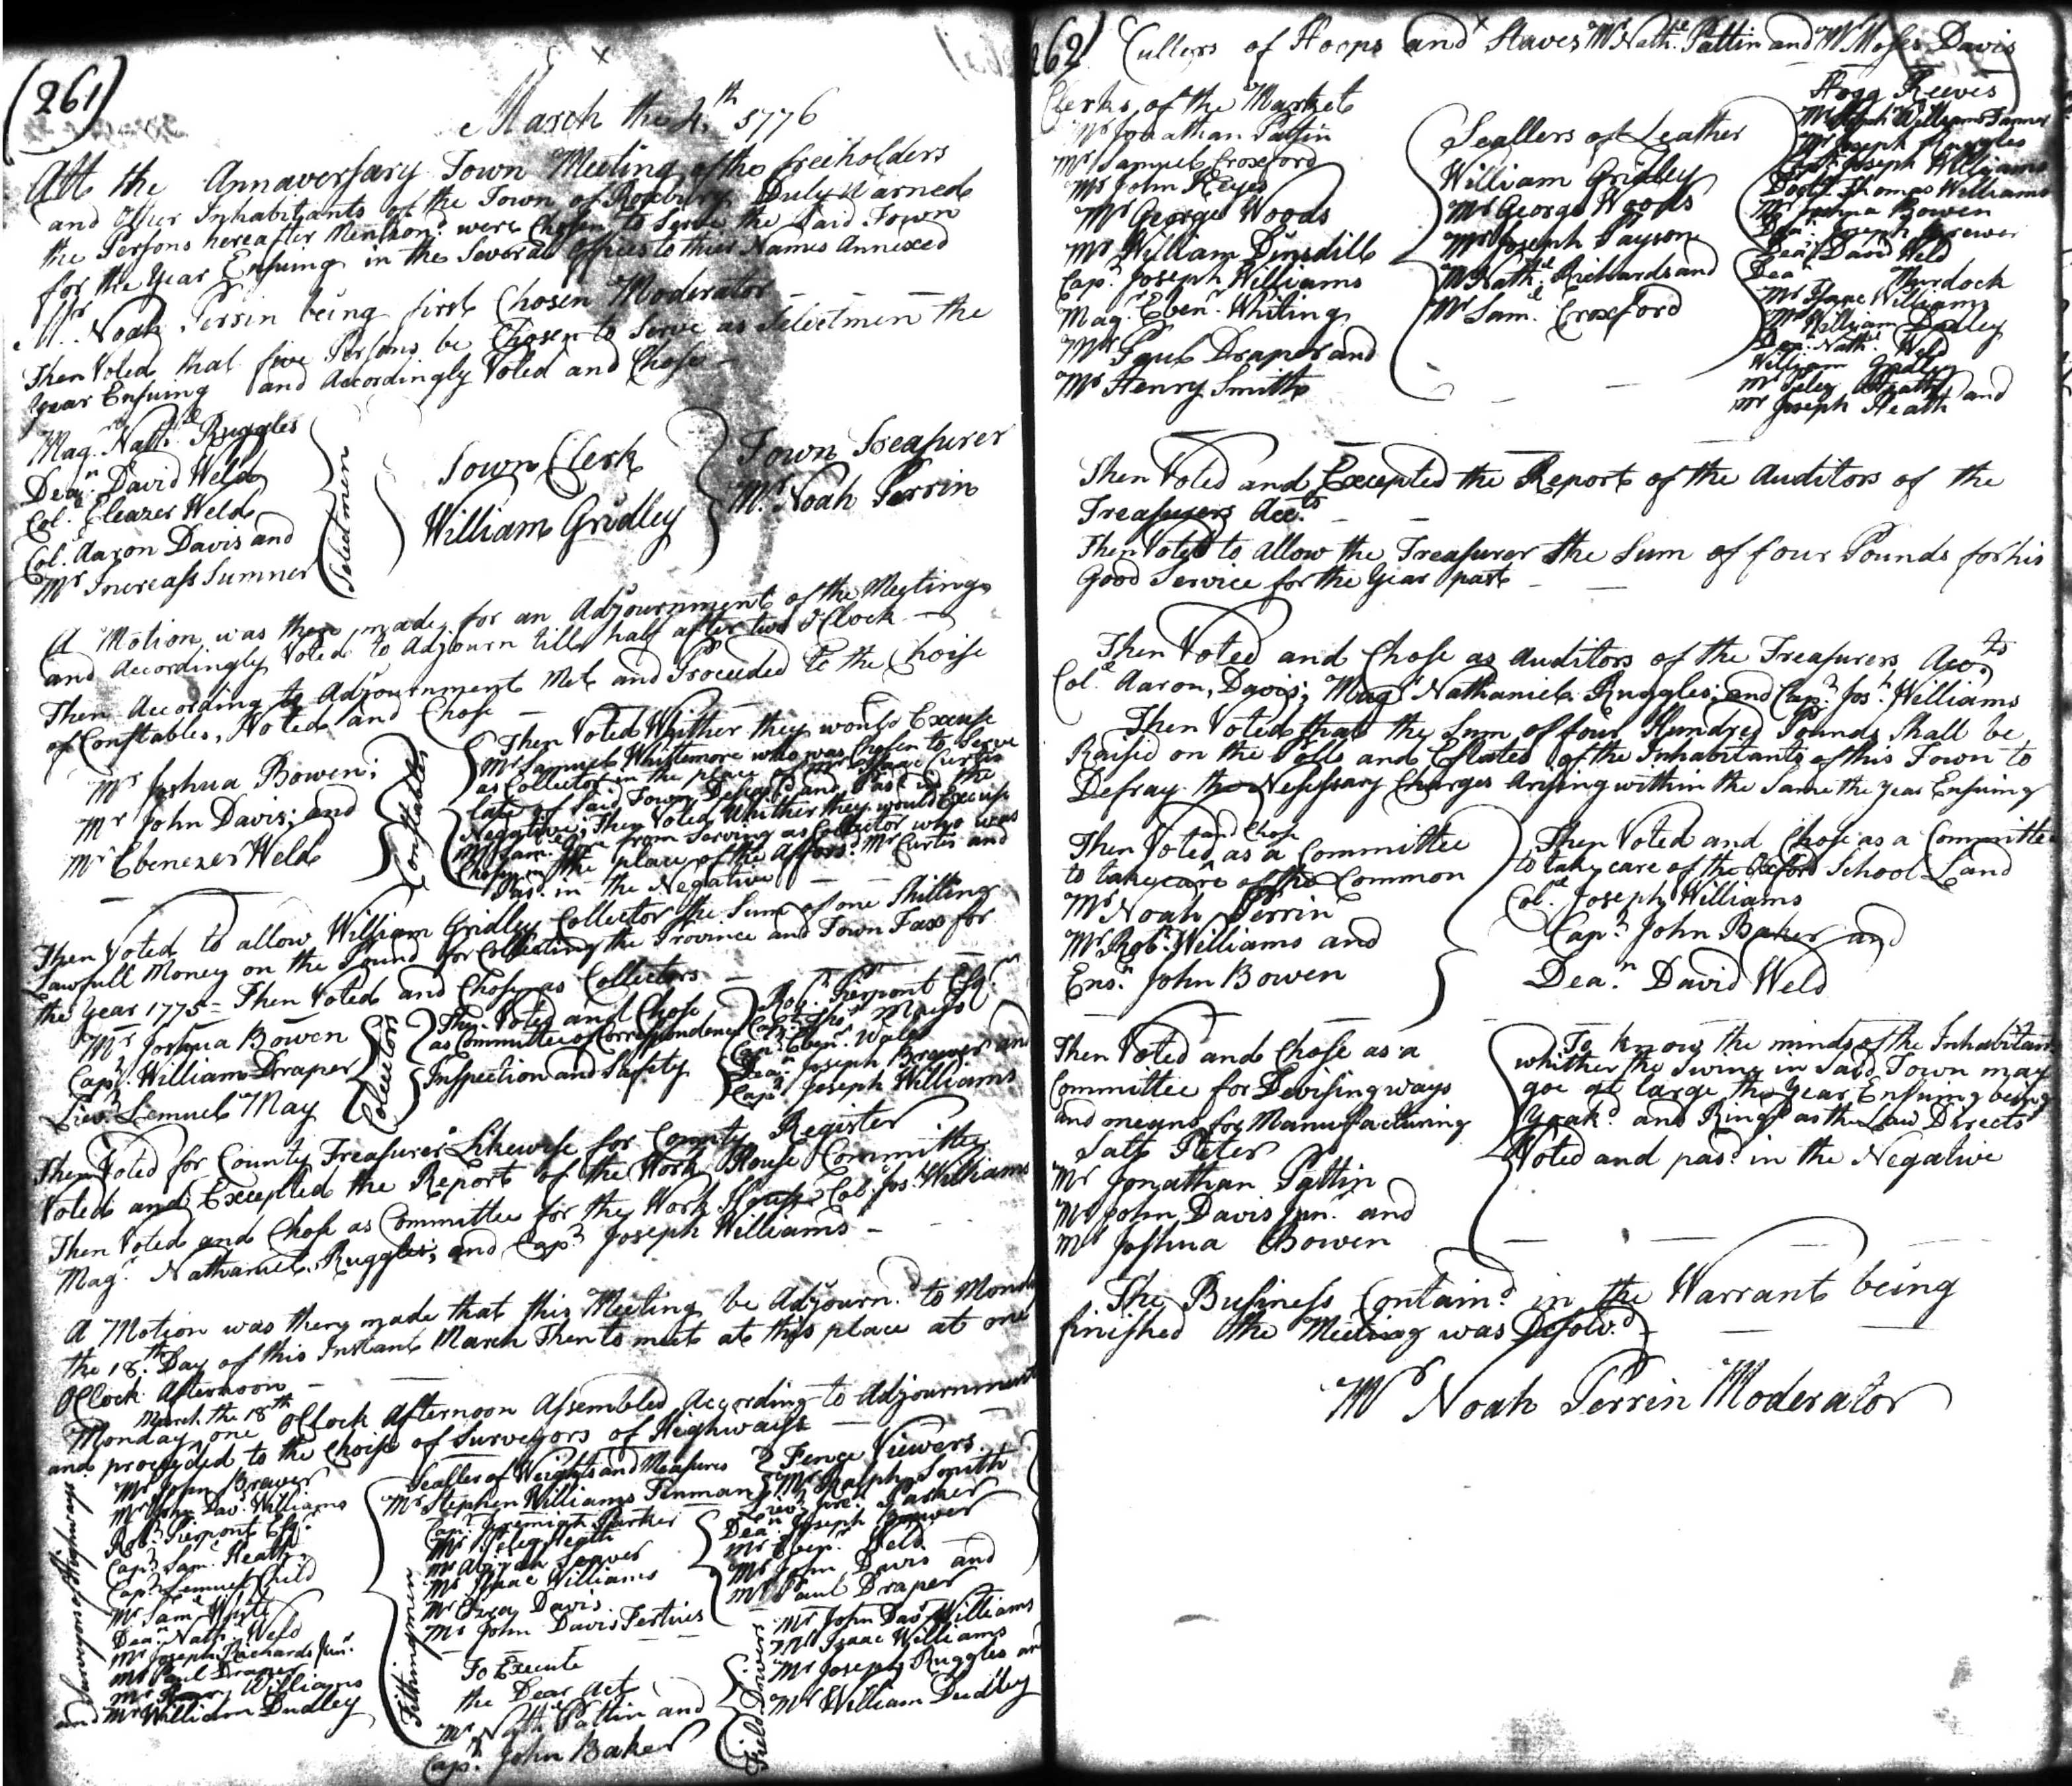 (261)
March the 4.th 1776
Att the Annaversary Town Meeting of the freeholders
and Other Inhabitants of the Town of Roxbury Duly Warned
the Persons hereafter Mention.d were Chosen to Serve the Said Town
for the Year Ensuing in the Several Offices to thier Names Annexed
Mr. Noah Perrin being first Chosen Moderator
Then Voted that five Persons be Chosen to Serve as Selectmen the
Year Ensuing and Accordingly Voted and Chose
Mag.r Nath.el Ruggles
Dea.n David Weld
Col. Eleazer Weld
Col. Aaron Davis and
Mr Increass Sumner
Selectmen
Town Clerk
William Gridley
Town Treasurer
Mr. Noah Perrin
A Motion was then made for an Adjournment of the Meeting
and Accordingly Voted to Adjourn till half after two OClock
Then According to Adjournment Met and Proceeded to the Choise
of Constables, Voted and Chose
Mr Joshua Bowen;
Mr John Davis; and
Mr Ebenezer Weld
Constables
Then Voted Whither they would Excuse
Mr Samuel Whittemore who was Chosen to Serve
as Collector in the place of Mr Isaac Curtis
late of Said Town Deceas.d and Pas.d in the
Negative; Then Voted Whither they would Excuse
from Serving as Collector who was
Chosen in the place of the Affors.d Mr Curtis and
Pas.d in the Negative
Then Voted to allow William Gridley Collector the Sum of one Shilling
Lawfull Money on the Pound for Collecting the Province and Town Tax for
the Year 1775 = Then Voted and Chose as Collectors
Mr Joshua Bowen
Cap.t William Draper
Liev.t Lemuel May
Collectors
Then Voted and Chose
as Committee of Correspondence
Inspection and Safety
Rob.t Pierpont Esq.r
Cap.t Tho.s Mayo
Cap.t Eben.r Wales
Dea.n Joseph Brewer and
Cap.t Joseph Williams
Then Voted for County Treasurer Likewise for County Register
Voted and Excepted the Report of the Work House Committey
Then Voted and Chose as Committee for the Work House Col. Jos. Williams
Mag.r Nathaniel Ruggles; and Cap.t Joseph Williams
A Motion was then made that this Meeting be Adjourn.d to Monday
the 18.th Day of this Instant March Then to meet at this place at one
OClock Afternoon
March the 18th
Monday one OClock Afternoon Assembled According to Adjournment
and proceeded to the Choise of Surveyors of Highways
Mr John Brewer
Mr John Dav.s Williams
Rob.t Pierpont Esq.r
Cap.t Sam.l Heath
Cap.t Lemuel Child
Mr Sam.l White
Dea.n Nath.l Weld
Mr Joseph Richards Jun.r
Mr Paul Draper
Mr Williams
and Mr William Dudley
Surveyors of Highways
Sealler of Weights and Measures
Mr Stephen Williams Tinman
Cap.t Jeremiah Parker
Mr Peleg Heath
Mr Abijah Seaver
Mr Isaac Williams
Mr Ezra Davis
Mr John Davis Tertius
Tithingmen
To Execute
the Dear Act
Mr Nath.l Pattin and
Cap.t John Baker
Fence Viewers
Mr Ralph Smith
Liev.t Jere.h Parker
Dea.n Joseph Brewer
Mr Eben.r Weld
Mr John Davis and
Mr Paul Draper
Mr John Dav.s Williams
Mr Isaac Williams
Mr Joseph Ruggles and
Mr William Dudley
Field Drivers
262) Cullers of Hoops and Staves Mr Nath.l Pattin and Mr Moses Davis
Clerks of the Market
Mr Jonathan Pattin
Mr Samuel Croxford
Mr John Keyes
Mr George Woods
Mr William Dinsdill
Cap.t Joseph Williams
Mag.r Eben.r Whiting
Mr Paul Draper and
Mr Henry Smith
Seallers of Leather
William Gridley
Mr George Woods
Mr Joseph Payson
Mr Nath.l Richards and
Mr Sam.l Croxford
Hogg Reeves
Mr Steph.n Williams Tanner
Mr Joseph Ruggles
Cap.t Joseph Williams
Doct.r Thomas Williams
Mr Joshua Bowen
Dea.n Joseph Brewer
Dea.n David Weld
Dea.n Murdock
Mr Isaac Williams
Mr William Dudley
Dea.n Nath.l Weld
William Gridley
Mr Peleg Heath and
Mr Joseph Heath
Then Voted and Excepted the Report of the Auditors of the
Treasurers Acc.ts
Then Voted to Allow the Treasurer the Sum of four Pounds for his
Good Service for the Year past
Then Voted and Chose as Auditors of the Treasurers Acc.ts
Col. Aaron Davis; Mag.r Nathaniel Ruggles; and Cap.t Jos.h Williams
Then Voted that the Sum of four Hundred Pounds Shall be
Raised on the Polls and Estates of the Inhabitants of this Town to
Defray the Nessysary Charges Arysing within the Same the Year Ensuing
Then Voted and Chose as a Committee
to take care of the Common
Mr Noah Perrin
Mr Rob.t Williams and
Ens.n John Bowen
Then Voted and Chose as a Committee
to take care of the Oxford School Land
Col. Joseph Williams
Cap.t John Baker and
Dea.n David Weld
Then Voted and Chose as a
Committee for Devising ways
and means for Manufacturing
Salt Peter
Mr Jonathan Pattin
Mr John Davis Jun.r and
Mr Joshua Bowen
To know the minds of the Inhabitants
whither the Swine in Said Town may
goe at large the Year Ensuing being
Yoak.d and Ring.d as the Law Directs
Voted and pas.d in the Negative
The Business Contain.d in the Warrant being
finished the Meeting was Desolv.d
Mr Noah Perrin Moderator